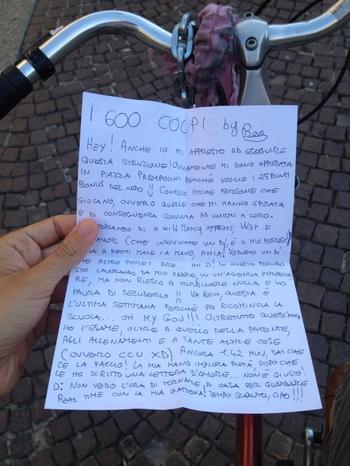 I 600 COLPI by Bea
HEY! ANCHE IO MI APPRESTO AD ESEGUIRE
QUESTA ISTRUZIONE! OVVIAMENTE MI SONO APPOSTATA
IN PIAZZA PRAMPOLINI PERCHÉ VOGLIO I 25 PUNTI
BONUS DEL NIDO !! CONOSCO POCHE PERSONE CHE
GIOCANO, OVVERO QUELLE CHE MI HANNO ISPIRATA
E DI CONSEGUENZA CONVINTA AD UNIRMI A LORO.
DI A WILD MARCY APPEARS, WSP E
(CHE INDOVINATE UN PO', È IL MIO MOROSO)
A FARMI MALE LA MANO, AHIA! VEDIAMO UN PO'
CHE ALTRO
STO LAVORANDO DA MIO PADRE, IN UN'AGENZIA IMMOBILIA
RE, MA NON RIESCO A COMBINARE NULLA E HO
PAURA DI DELUDERLO !! VA BEH, QUESTA È
L'ULTIMA SETTIMANA PERCHÉ POI RICOMINCIA LA
SCUOLA... OH MY GOD!!! OLTRETUTTO QUEST'ANNO
HO L'ESAME, OLTRE A QUELLO DELLA PATENTE,
AGLI ALLENAMENTI E A TANTE ALTRE COSE
(OVVERO CCU XD) ANCORA 142 MIN, DAI CHE
CE LA FACCIO! LA MIA MANO IMPLORA PIETÀ, DOPO CHE
LE HO SCRITTO UNA LETTERA D'AMORE... NON È GIUSTO!
D: NON VEDO L'ORA DI TORNARE A CASA PER GUARDARE
REAL TIME CON LA MIA GATTONA! TEMPO SCADUTO, CIAO !!!